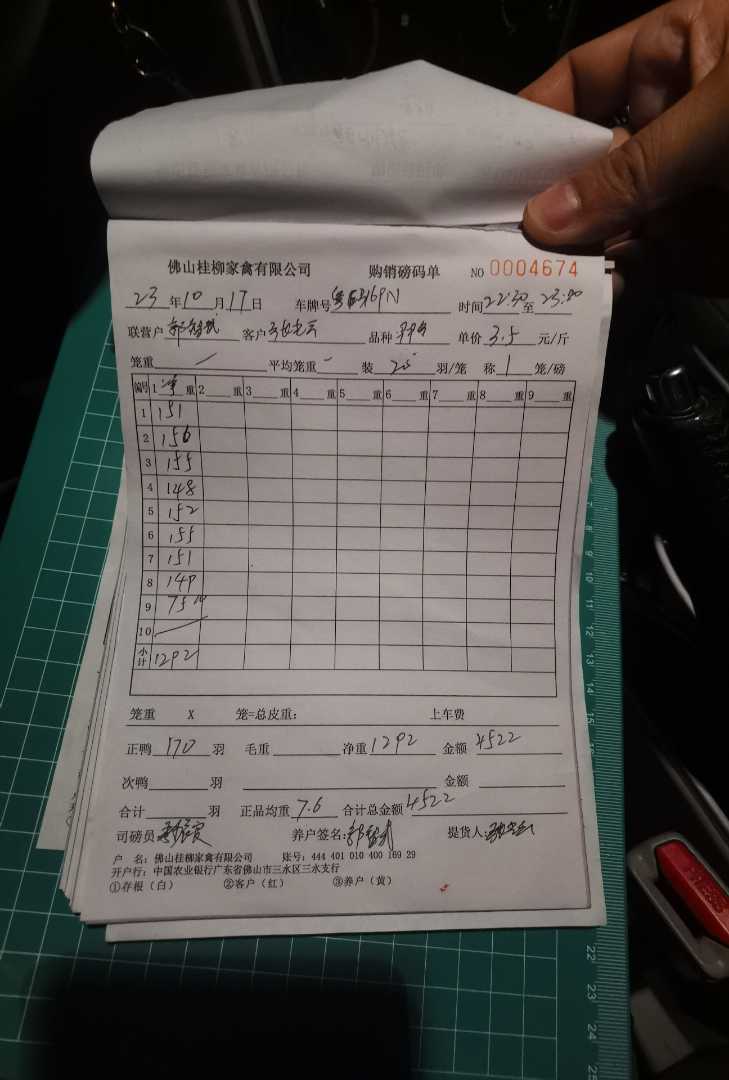 佛山桂柳家禽有限公司 购销磅码单 NO 0004674
23 年 10 月 17 日 车牌号 时间 22:30 至 23:00
联营户 客户 品种 单价 3.5 元/斤
笼重 / 平均笼重 - 装 20 羽/笼 称 1 笼/磅
编号 1 净 重 2 重 3 重 4 重 5 重 6 重 7 重 8 重 9 重
1 151
2 156
3 155
4 148
5 152
6 155
7 151
8 149
9 75
10
小计 1292
笼重 X 笼=总皮重: 上车费
正鸭 170 羽 毛重 净重 1292 金额 4522
次鸭 羽 金额
合计 羽 正品均重 7.6 合计总金额 4522
司磅员 养户签名: 提货人:
户 名: 佛山桂柳家禽有限公司 账号: 444 401 010 400 169 29
开户行: 中国农业银行广东省佛山市三水区三水支行
①存根（白） ②客户（红） ③养户（黄）
5
6
7
8
9
10
11
12
13
14
15
22
23
24
25